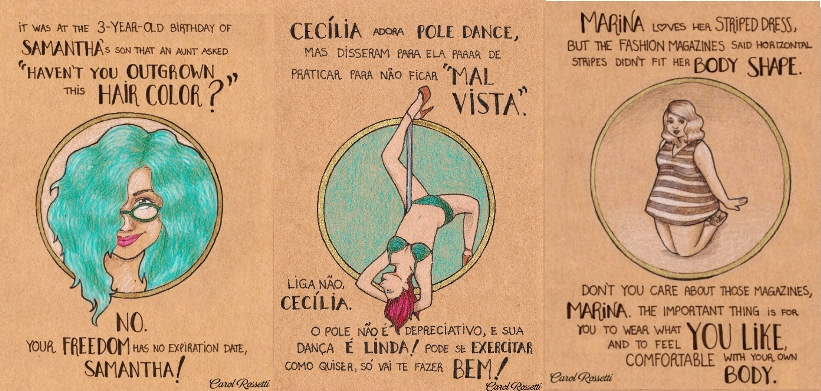 IT WAS AT THE 3-YEAR-OLD BIRTHDAY OF
SAMANTHA'S SON THAT AN AUNT ASKED
"HAVEN'T YOU OUTGROWN
THIS HAIR COLOR?"
NO.
YOUR FREEDOM HAS NO EXPIRATION DATE,
SAMANTHA!
Carol Rossetti
CECÍLIA ADORA POLE DANCE,
MAS DISSERAM PARA ELA PARAR DE
PRATICAR PARA NÃO FICAR "MAL
VISTA".
LIGA NÃO,
CECÍLIA.
O POLE NÃO É DEPRECIATIVO, E SUA
DANÇA É LINDA! PODE SE EXERCITAR
COMO QUISER, SÓ VAI TE FAZER BEM!
Carol Rossetti
MARINA LOVES HER STRIPED DRESS,
BUT THE FASHION MAGAZINES SAID HORIZONTAL
STRIPES DIDN'T FIT HER BODY SHAPE.
DON'T YOU CARE ABOUT THOSE MAGAZINES,
MARINA. THE IMPORTANT THING IS FOR
YOU TO WEAR WHAT YOU LIKE,
AND TO FEEL
COMFORTABLE WITH YOUR OWN
BODY.
Carol Rossetti